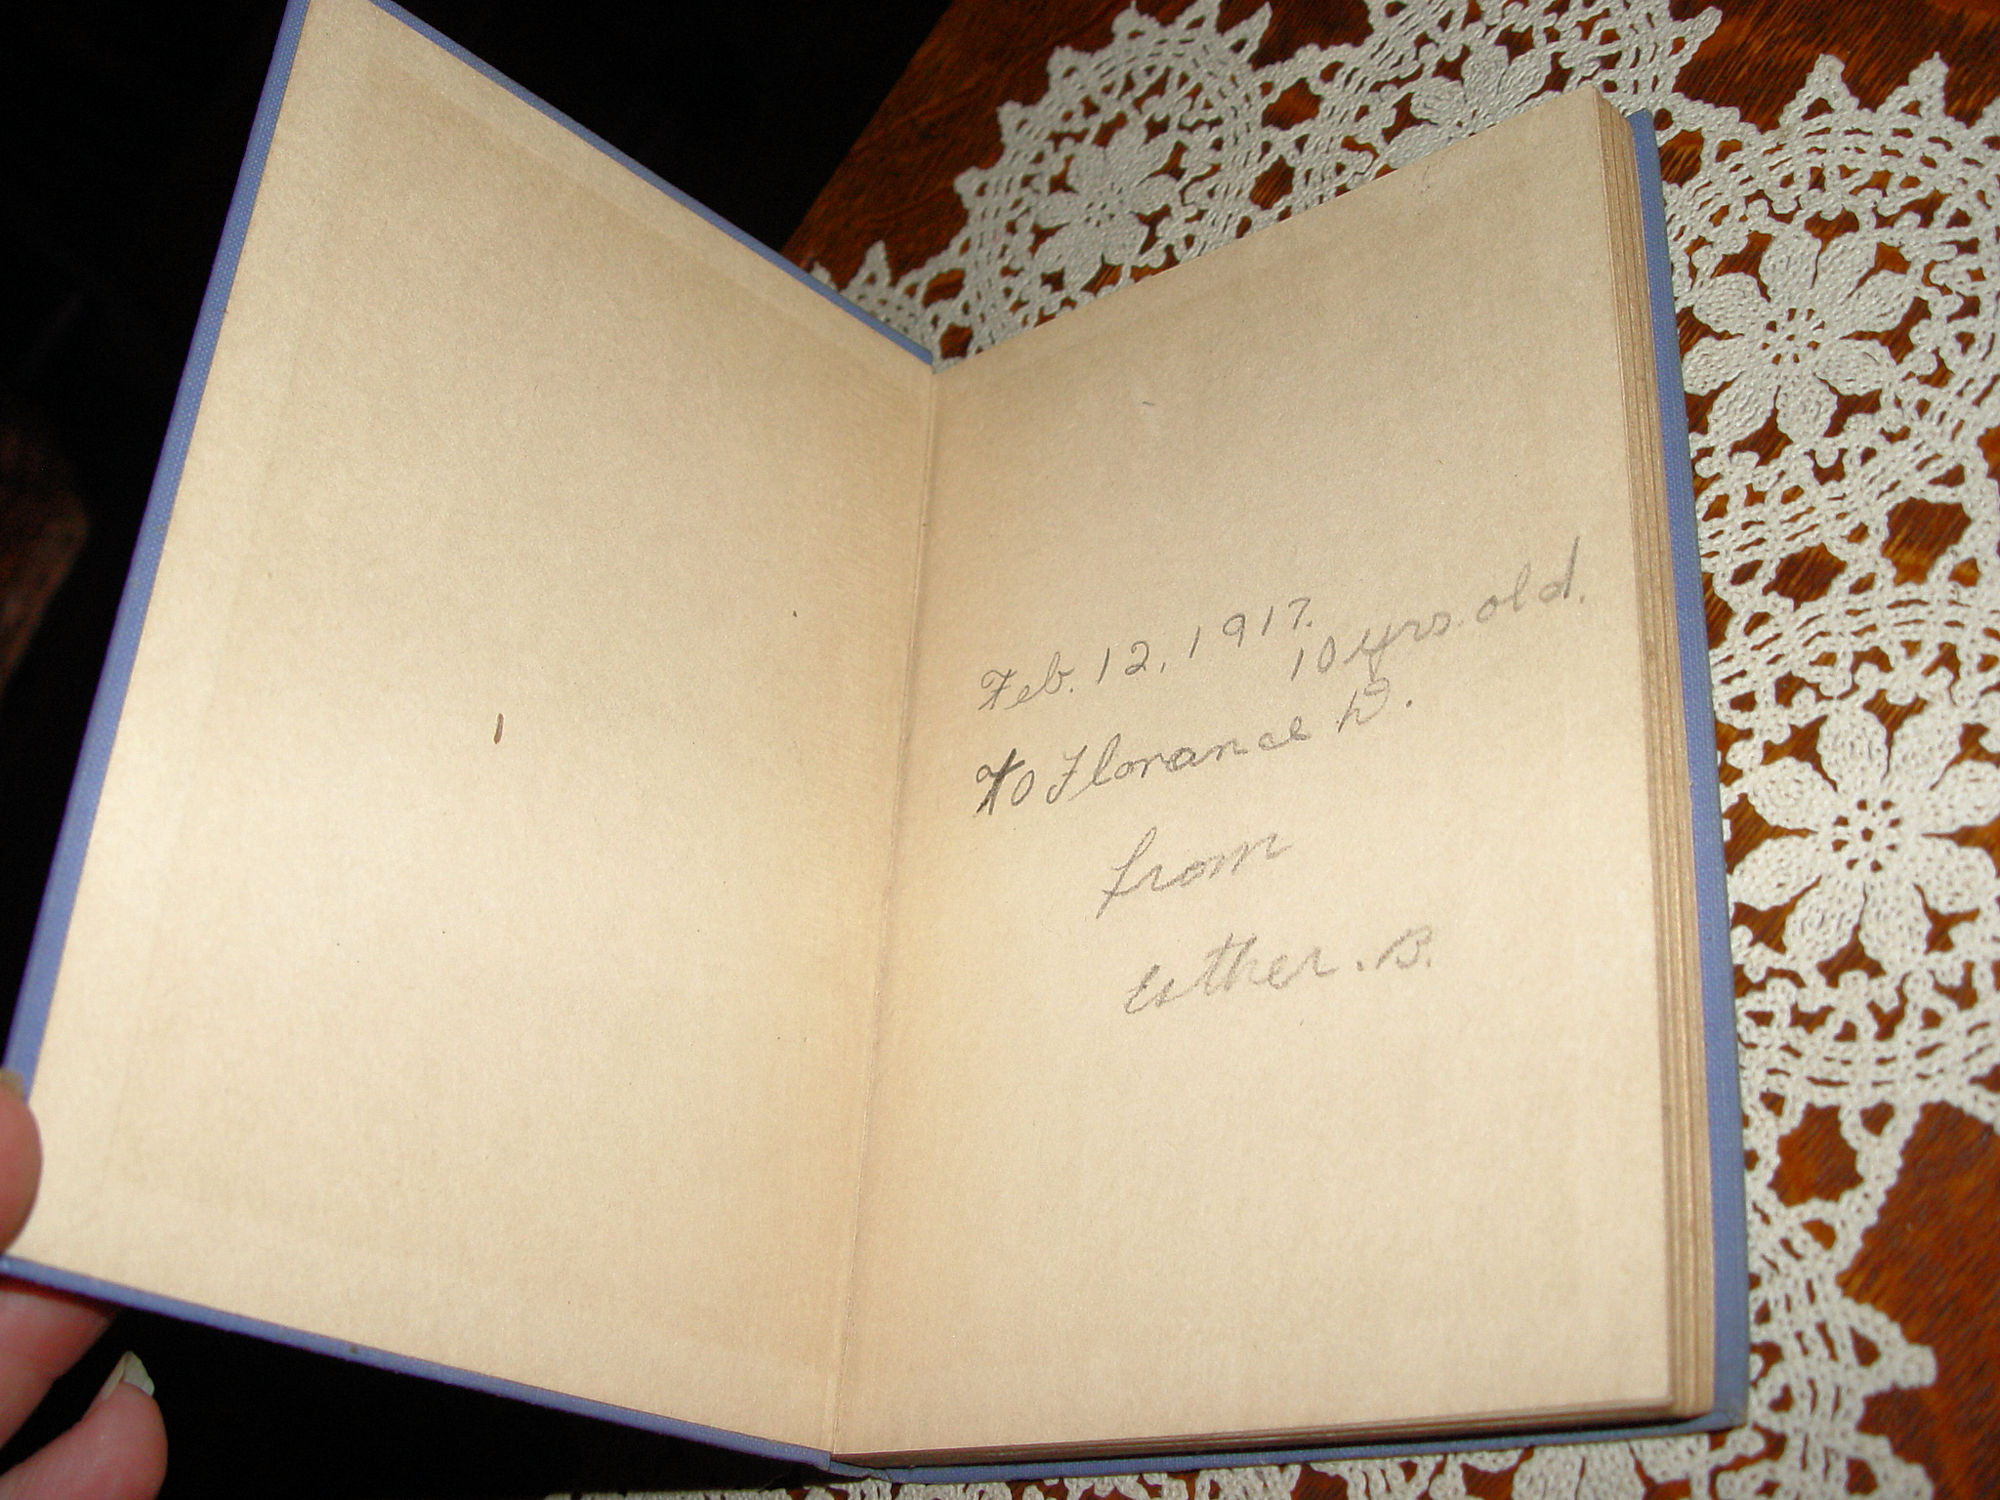 Feb. 12, 1917.
10 yrs. old.
To Florance D.
from
Esther. B.